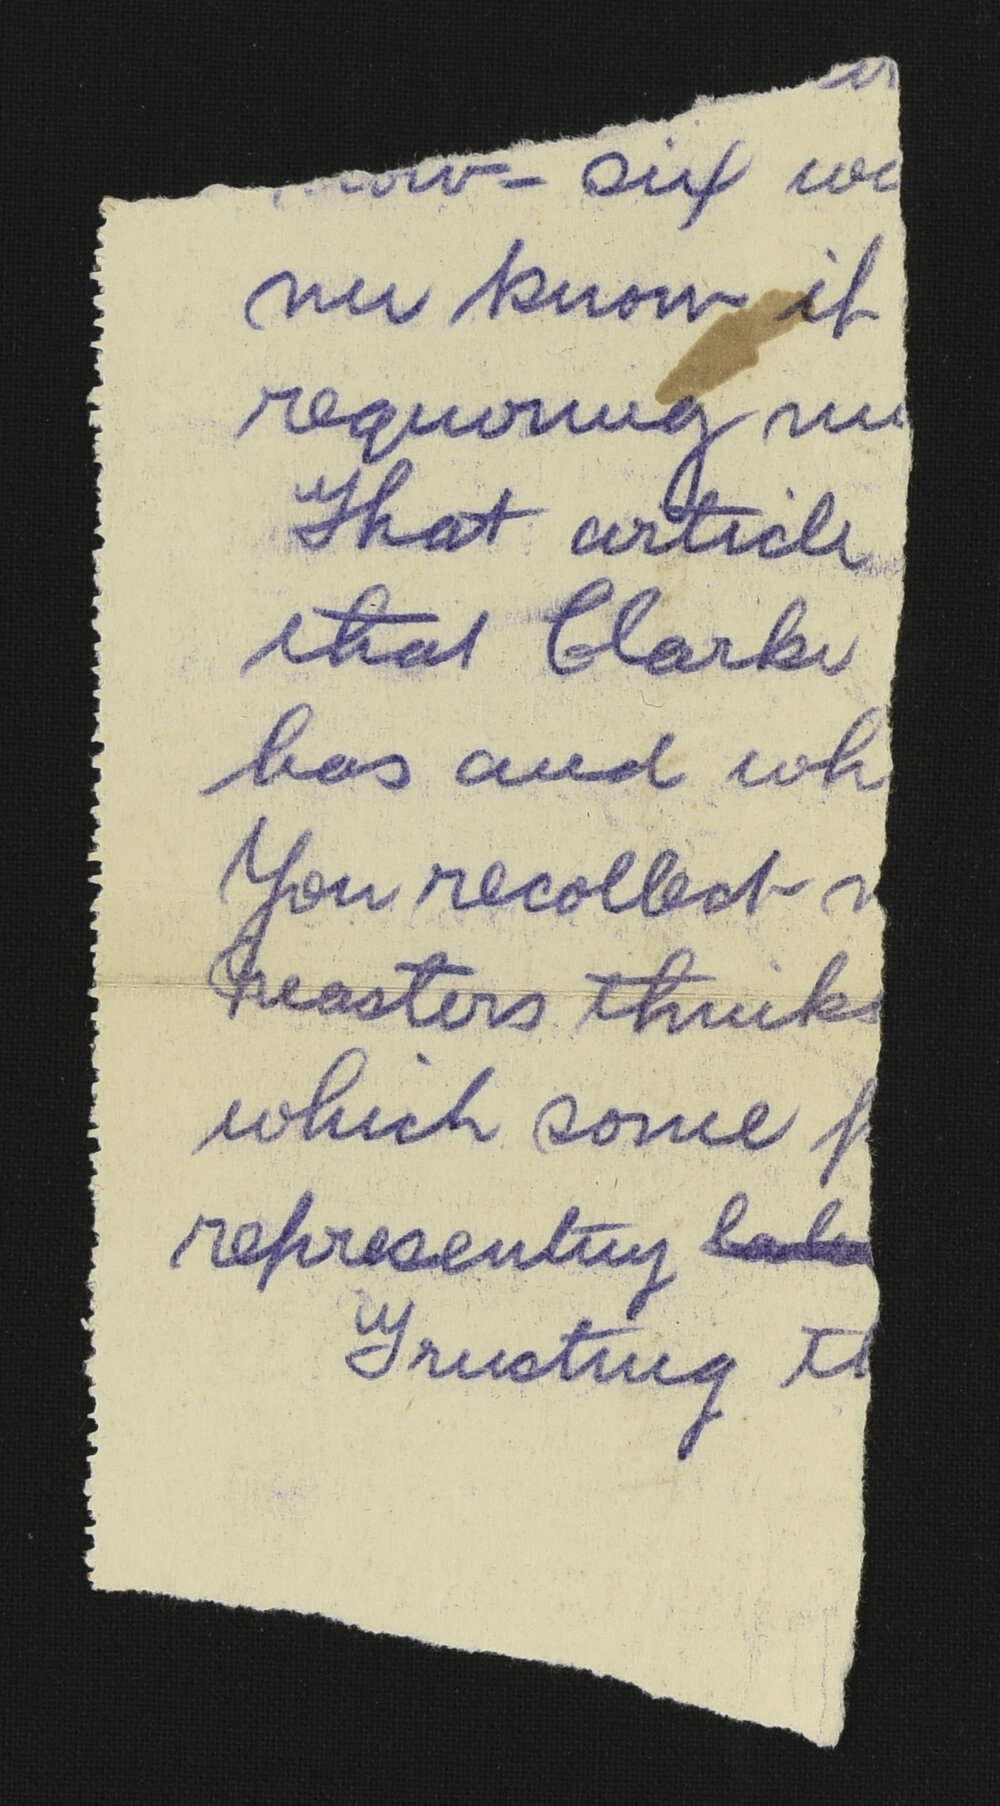 now - six we
me know if
requiring me
That article
that Clarke
has and wh
You recollect m
heasters thinks
which some f
representing
Trusting th